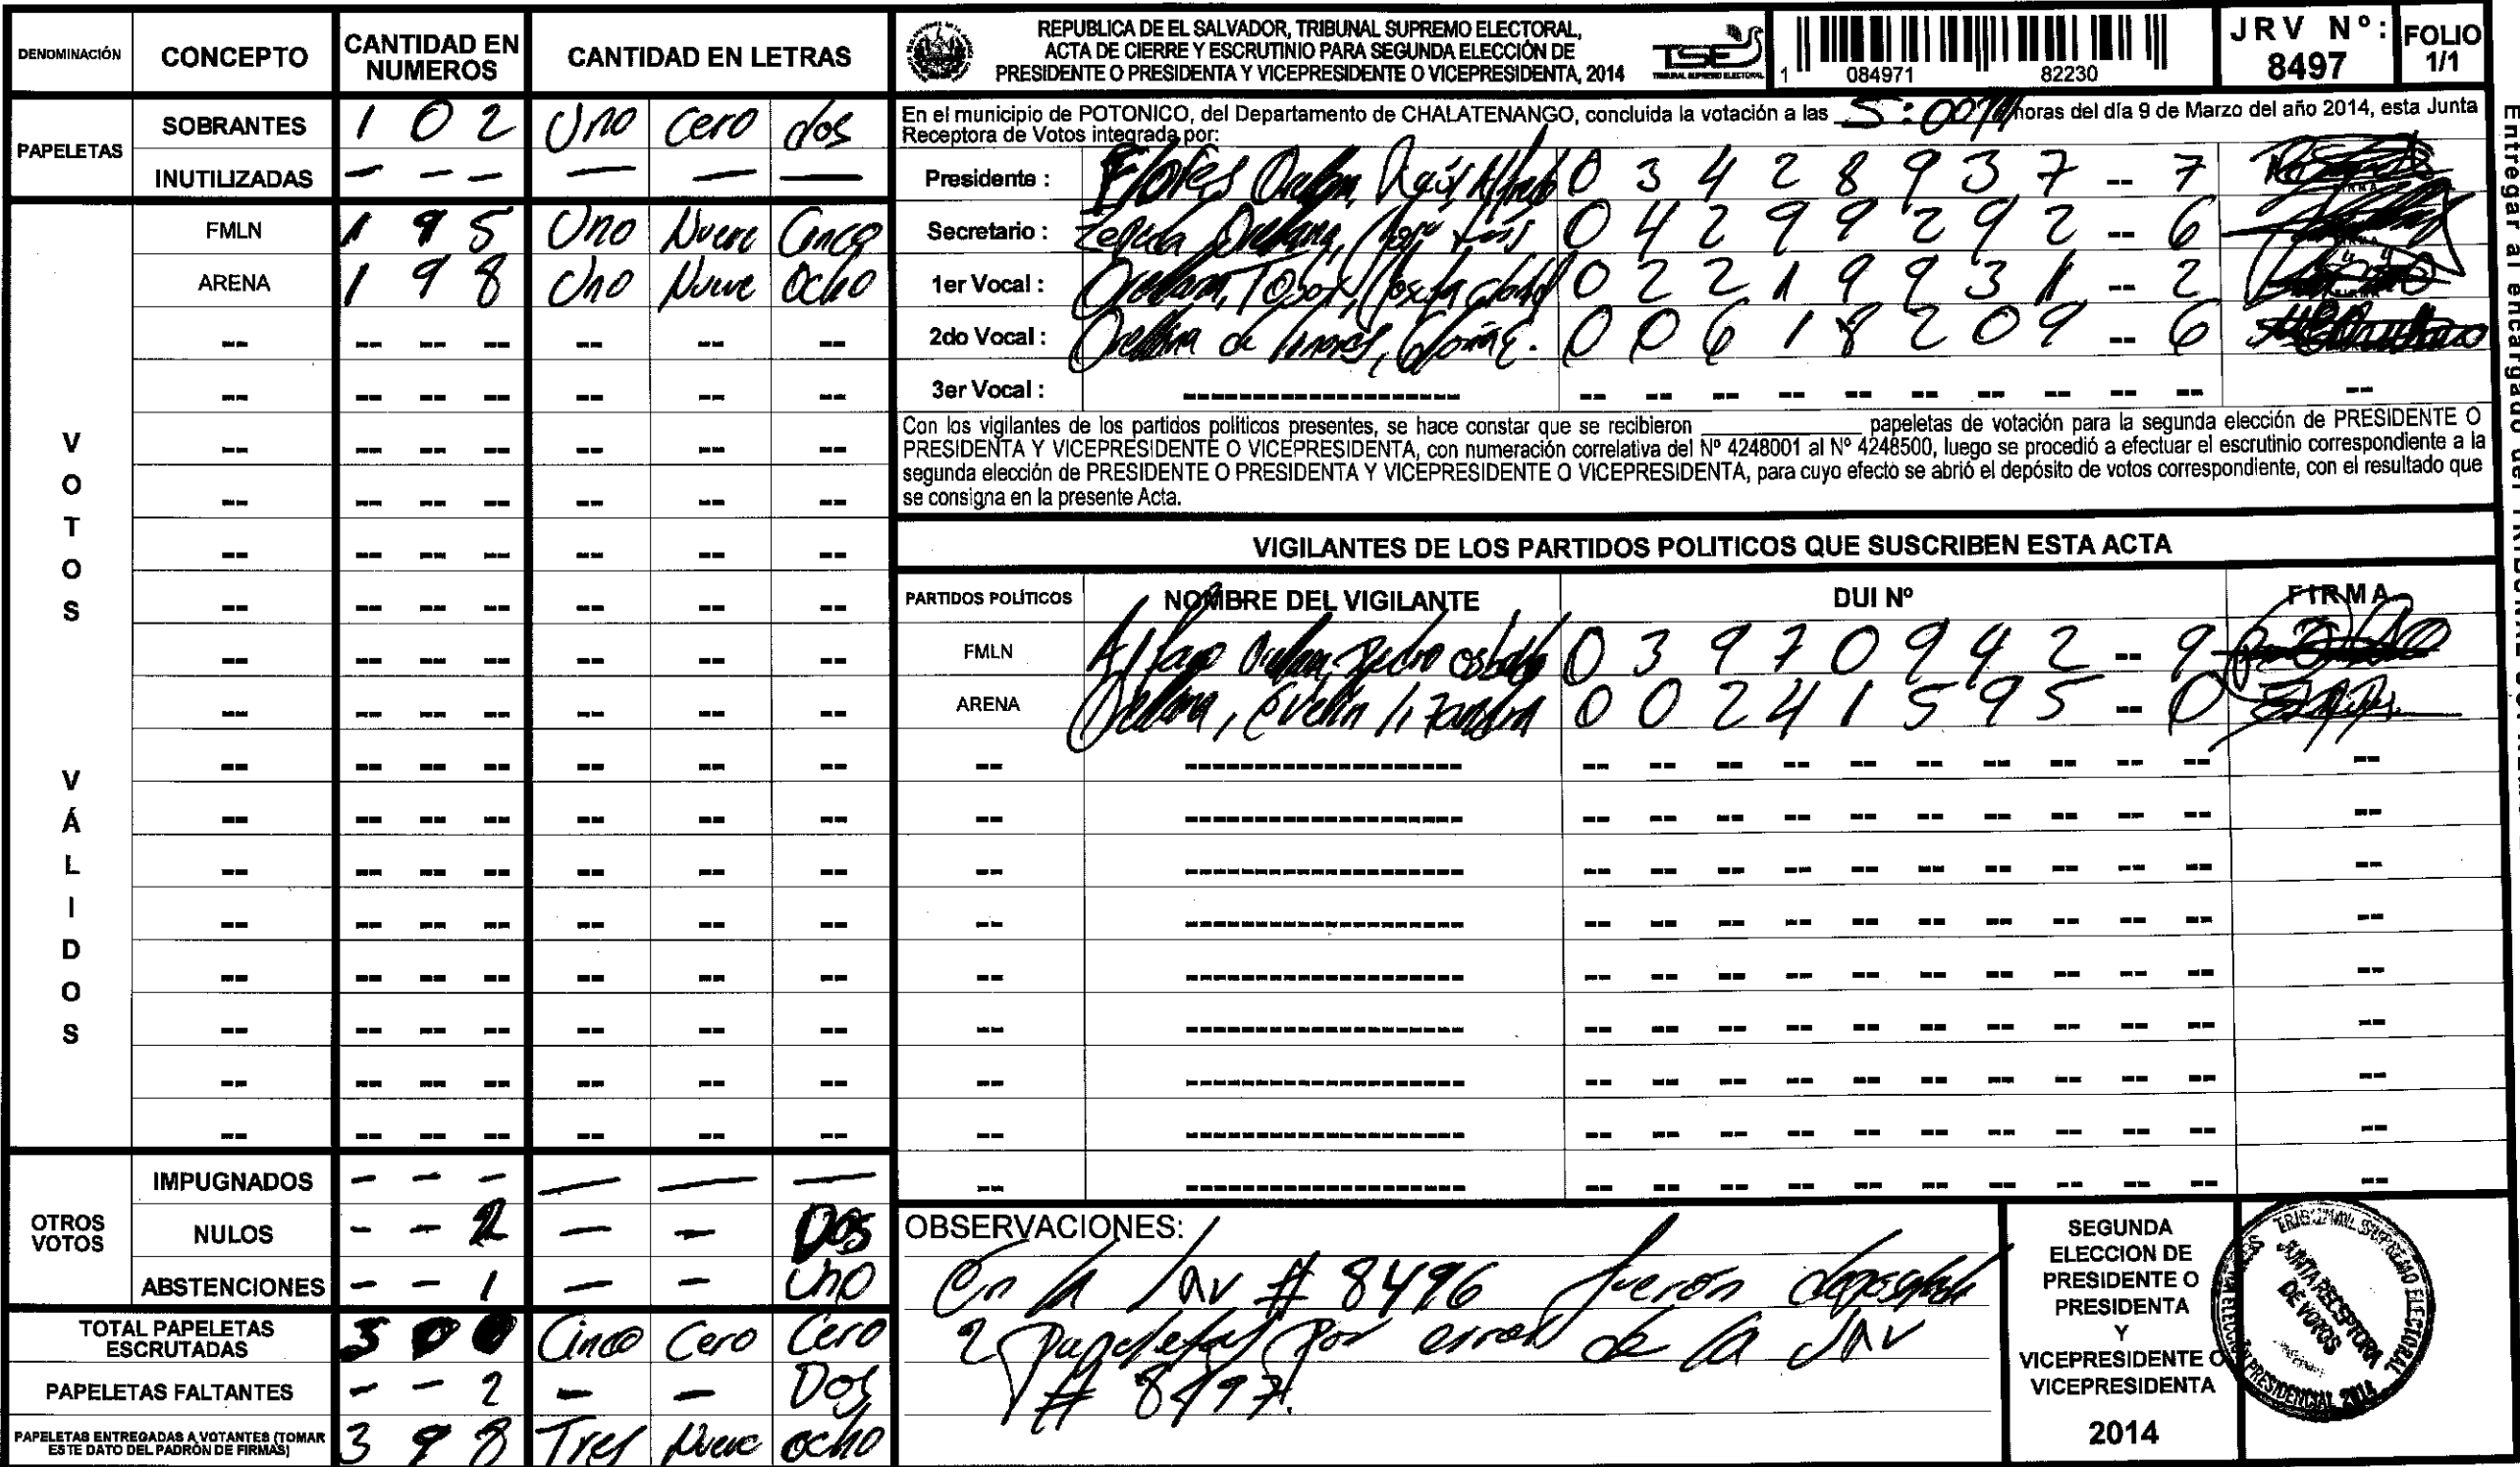 DENOMINACIÓN CONCEPTO CANTIDAD EN NUMEROS CANTIDAD EN LETRAS
PAPELETAS
SOBRANTES 1 0 2 Uno Cero dos
INUTILIZADAS - - - - - -
VOTOS VÁLIDOS
FMLN 1 9 5 Uno Nueve Cinco
ARENA 1 9 8 Uno Nueve Ocho
OTROS VOTOS
IMPUGNADOS - - - - - -
NULOS - - 2 - - Dos
ABSTENCIONES - - 1 - - Uno
TOTAL PAPELETAS ESCRUTADAS 5 0 0 Cinco Cero Cero
PAPELETAS FALTANTES - - 2 - - Dos
PAPELETAS ENTREGADAS A VOTANTES (TOMAR ESTE DATO DEL PADRÓN DE FIRMAS) 3 9 8 Tres Nueve ocho
REPUBLICA DE EL SALVADOR, TRIBUNAL SUPREMO ELECTORAL,
ACTA DE CIERRE Y ESCRUTINIO PARA SEGUNDA ELECCIÓN DE
PRESIDENTE O PRESIDENTA Y VICEPRESIDENTE O VICEPRESIDENTA, 2014
TSE
TRIBUNAL SUPREMO ELECTORAL
1 084971 82230
JRV Nº: 8497
FOLIO 1/1
En el municipio de POTONICO, del Departamento de CHALATENANGO, concluida la votación a las 5:00 horas del día 9 de Marzo del año 2014, esta Junta
Receptora de Votos integrada por:
Presidente : Flores Raúl Alfredo 0 3 4 2 8 9 3 7 -- 7
Secretario : Zepeda Orellana, José Luis 0 4 2 9 9 2 9 2 -- 6
1er Vocal : Orellana, 0 2 2 1 9 9 3 1 -- 2
2do Vocal : Orellana de 0 0 6 1 8 2 0 9 -- 6
3er Vocal :
Con los vigilantes de los partidos políticos presentes, se hace constar que se recibieron ____ papeletas de votación para la segunda elección de PRESIDENTE O
PRESIDENTA Y VICEPRESIDENTE O VICEPRESIDENTA, con numeración correlativa del Nº 4248001 al Nº 4248500, luego se procedió a efectuar el escrutinio correspondiente a la
segunda elección de PRESIDENTE O PRESIDENTA Y VICEPRESIDENTE O VICEPRESIDENTA, para cuyo efecto se abrió el depósito de votos correspondiente, con el resultado que
se consigna en la presente Acta.
VIGILANTES DE LOS PARTIDOS POLITICOS QUE SUSCRIBEN ESTA ACTA
PARTIDOS POLÍTICOS NOMBRE DEL VIGILANTE DUI Nº FIRMA
FMLN Pedro 0 3 9 7 0 9 4 2 -- 9
ARENA Orellana, Evelin 0 0 2 4 1 5 9 5 -- 0
OBSERVACIONES:
En la Jrv # 8496 fueron
2 papeletas por error de la JRV
# 8497.
SEGUNDA
ELECCION DE
PRESIDENTE O
PRESIDENTA
Y
VICEPRESIDENTE O
VICEPRESIDENTA
2014
TRIBUNAL SUPREMO ELECTORAL
JUNTA RECEPTORA
DE VOTOS
ELECCIÓN PRESIDENCIAL 2014
Entregar al encargado del TRIBUNAL